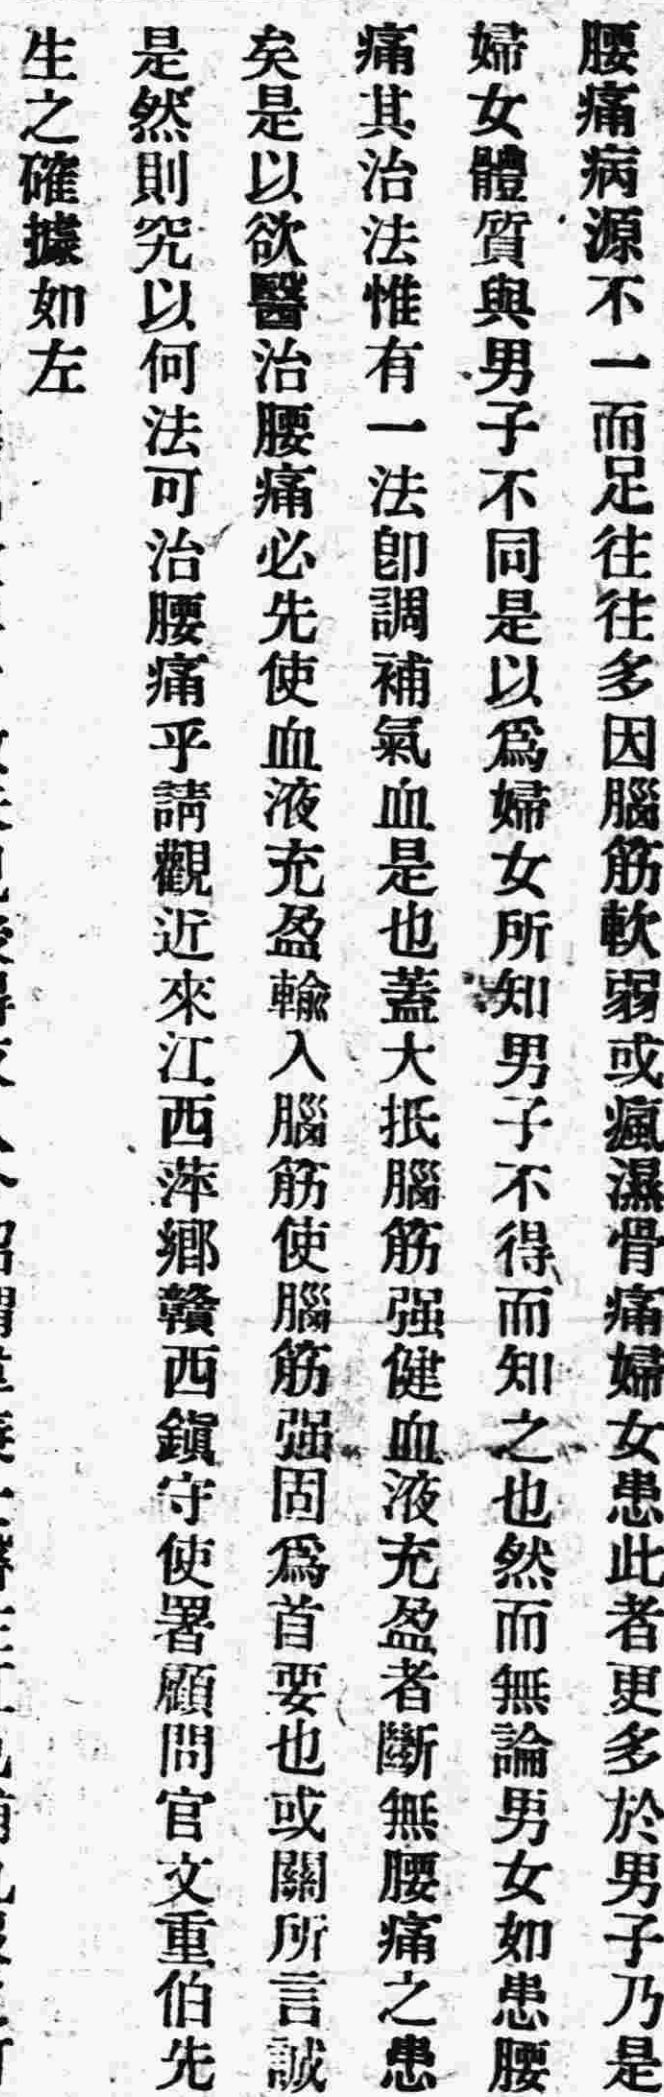 腰痛病源不一而足往往多因腦筋軟弱或瘋濕骨痛婦女患此者更多於男子乃是
婦女體質與男子不同是以爲婦女所知男子不得而知之也然而無論男女如患腰
痛其治法惟有一法卽調補氣血是也蓋大抵腦筋强健血液充盈者斷無腰痛之患
矣是以欲醫治腰痛必先使血液充盈輸入腦筋使腦筋强固爲首要也或關所言誠
是然則究以何法可治腰痛乎請觀近來江西萍鄉贛西鎭守使署顧問官文重伯先
生之確據如左